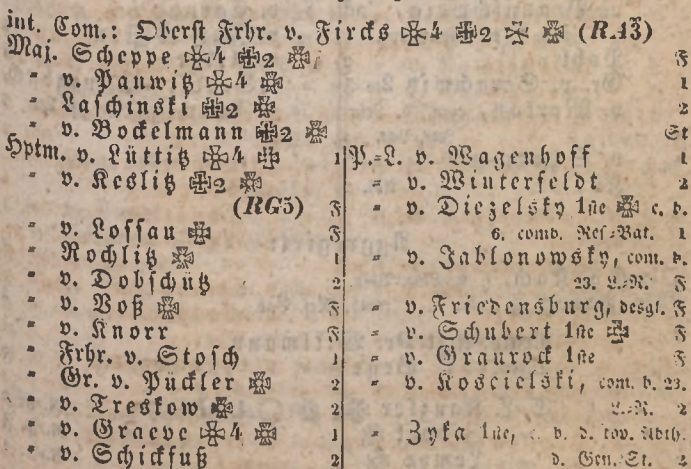 int. Com.: Oberst Frhr. v. Fircks ✠4 ✠2 ✠ ✠ (RA3)
Maj. Scheppe ✠4 ✠2 ✠ F
" v. Pannwitz ✠4 ✠ 1
" Laschinski ✠2 ✠ 2
" v. Bockelmann ✠2 ✠ St
Hptm. v. Lüttitz ✠4 ✠ 1
" v. Keslitz ✠2 ✠
(RG5) F
" v. Lossau ✠ F
" Rochlitz ✠ 1
" v. Dobschütz 2
" v. Voß ✠ F
" v. Knorr F
" Frhr. v. Stosch 1
" Gr. v. Pückler ✠ 2
" v. Treskow ✠ 2
" v. Graeve ✠4 ✠ 1
" v. Schickfuß 2
P.-L. v. Wagenhoff 1
" v. Winterfeldt 2
" v. Diezelsky 1ste ✠ c. b.
6. comb. Res.-Bat. 1
" v. Jablonowsky, com. b.
23. L.-R. F
" v. Friedensburg, desgl. F
" v. Schubert 1ste ✠ F
" v. Graurock 1ste F
" v. Koscielski, com. b. 23.
L.-R. 2
" Zyka 1ste, c. b. d. top. Abth.
d. Gen.-St. 2